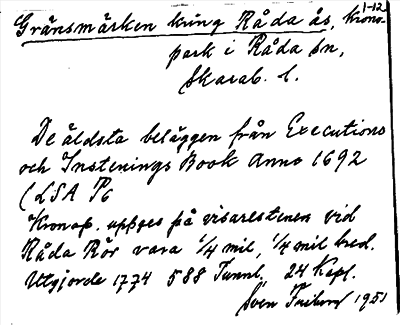 1-12
Gränsmärken kring Råda ås, krono-
park i Råda sn,
Skarab. l.
De äldsta beläggen från Executions
och Instenings Book Anno 1692
(LSA P6
Kronop. uppges på visarestenen vid
Råda Rör vara 1/4 mil, 1/4 mil bred.
Utgjorde 1774 588 Tunnl, 24 Kapl.
Sven 1951